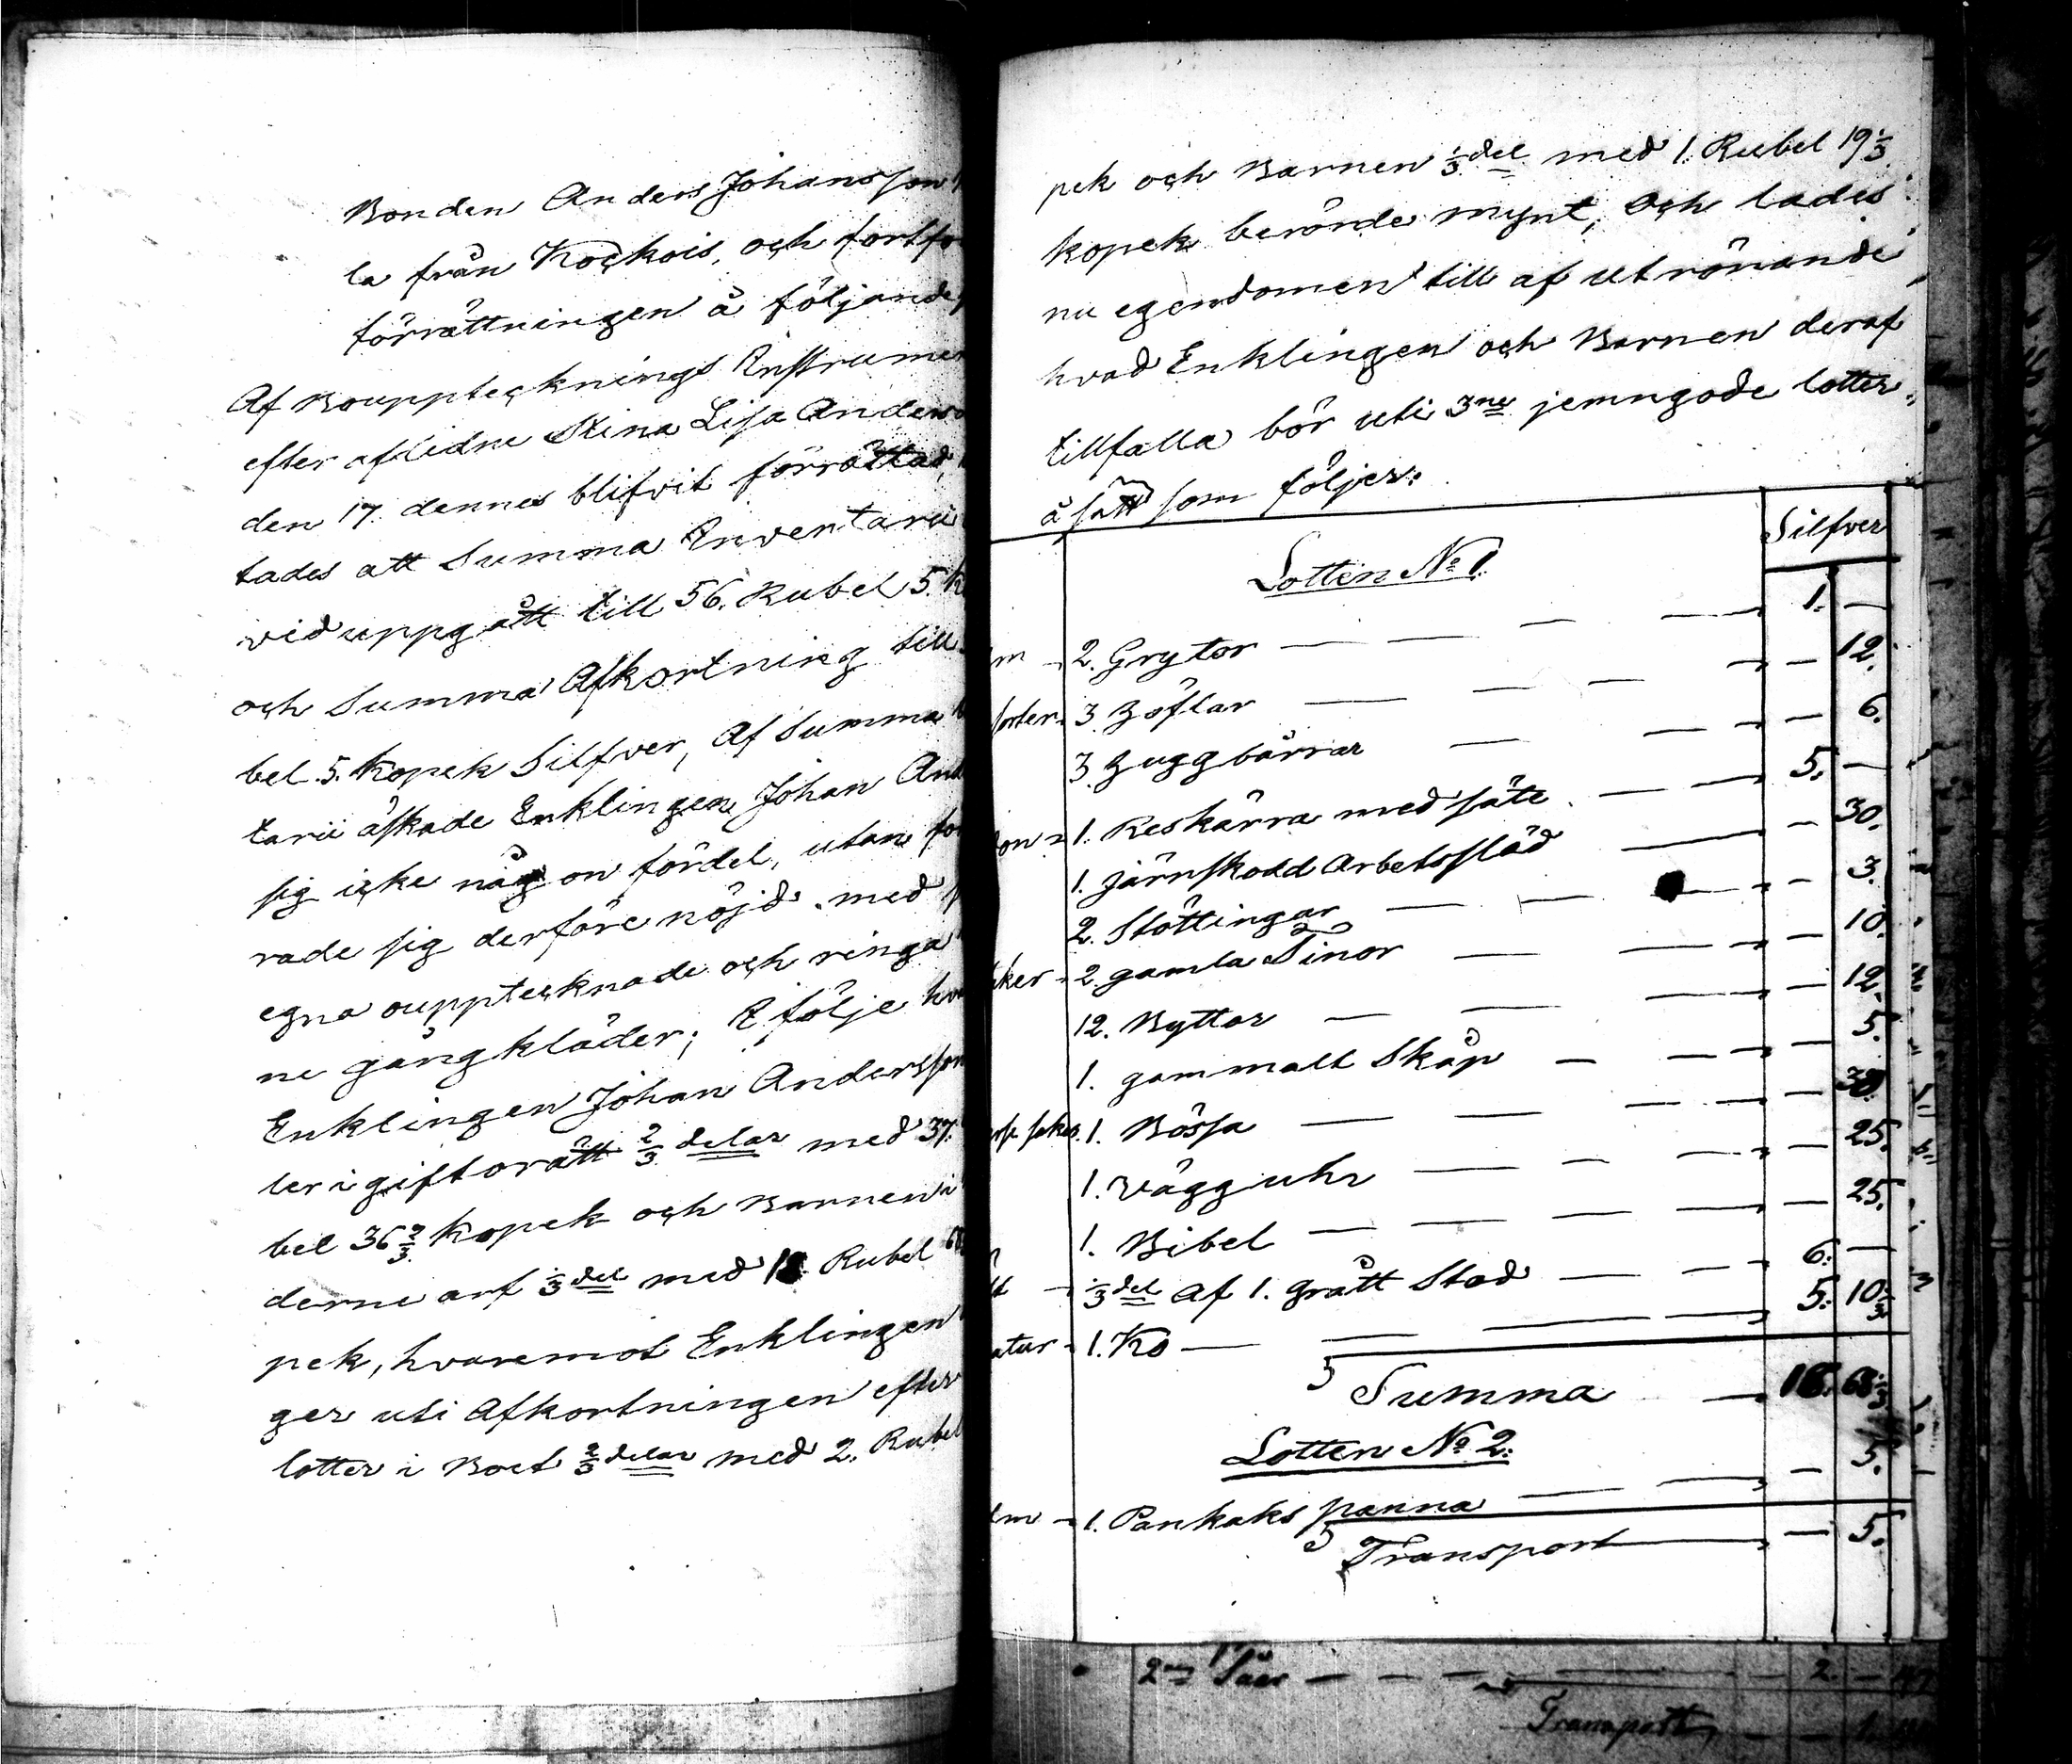 Bonden Anders Johansson
la från Kockois, och fortfo
förrättningen å följande
Af Bouppteckningsr Instrumen
efter aflidne Stina Lisa Anders
den 17. dennes blifvit förrättad,
tades att Summa Inventarii
vid uppgått till 56. Rubel 5. K
och Summa Afkortning till
bel 5. Kopek Silfver, Af Summa
tarii äskade Enklingen Johan And
sig icke någon fördel, utan för
rade sig derföre nöjd med
egna oupptecknade och ringa
ne gångkläder; I följe hva
Enklingen Johan Andersson
ler i giftorätt 2/3 delar med 37.
bel 36 2/3 kopek och Barnen i
derne arf 1/3 del med 18 Rubel 68
pek, hvaremot Enklingen
ger uti Afkortningen efter
lotter i Boet 2/3 delar med 2. Rubel
pek och Barnen 1/3 del med 1. Rubel 19 1/3
kopek berörde mynt, och lades
nu egendomen till af utrönande
hvad Enklingen och Barnen deraf
tillfalla bör uti 3ne jemngode lotter,
å sätt som följer:
Silfver
Lotten No 1.
2. Grytor — 1. —
3 — 12.
3 — 6.
1. Reskärra med säte — 5. —
1. järnskodd Arbetssläd — 30.
2. Stöttingar — 3.
2. gamla Tinor — 10.
12. Byttor — 12.
1. gammalt Skåp — 5.
1. Bössa — 30.
1. Vägguhr — 25.
1. Bibel — 25.
1/3 del af 1. grått Stod — 6. —
1. Ko — 5. 10 1/3
Summa — 18. 68 1/3
Lotten No 2.
1. Pankaks panna — 5.
Transport — 5.
2 — 2. —
Transport